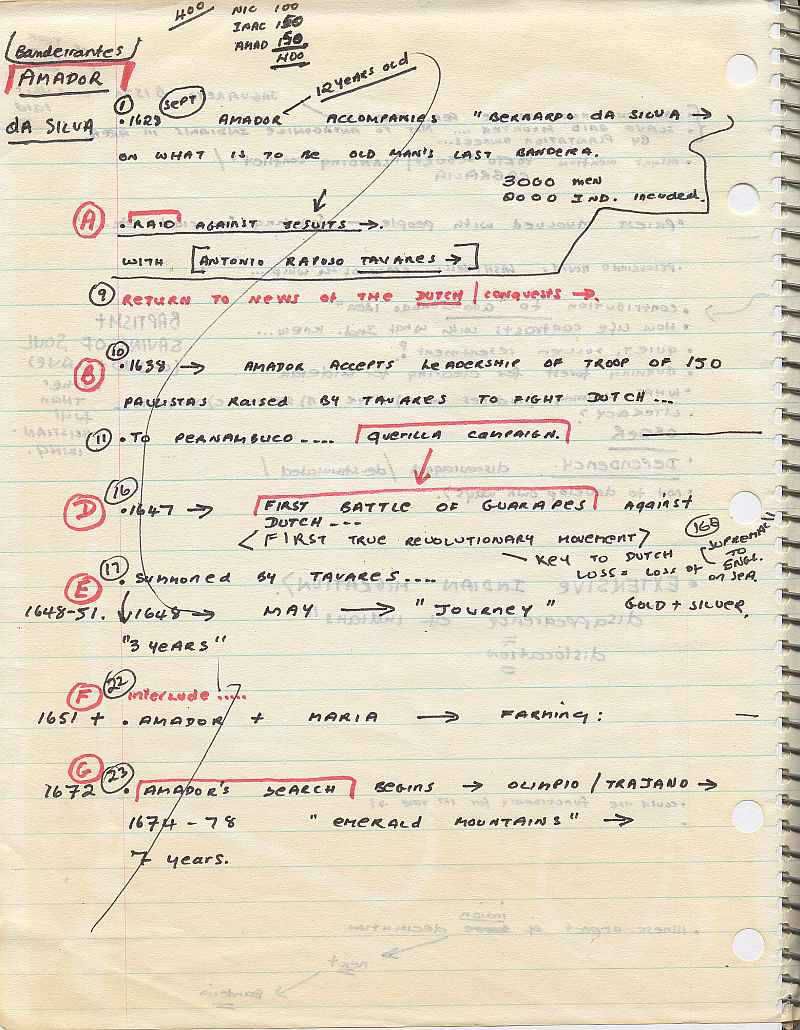 400 NIC 100
INAC 150
AMAD 150
400
Bandeirantes
AMADOR
da SILVA
12 years old
① SEPT
• 1628 AMADOR ACCOMPANIES "BERNARDO da SILVA →
ON WHAT IS TO BE OLD MAN'S LAST BANDEIRA.
3000 men
2000 IND. included.
Ⓐ • RAID AGAINST JESUITS →.
WITH [ANTONIO RAPOSO TAVARES →]
⑨ RETURN TO NEWS OF THE DUTCH / CONQUESTS →.
⑩
Ⓑ • 1638 → AMADOR ACCEPTS LEADERSHIP OF TROOP OF 150
PAULISTAS RAISED BY TAVARES TO FIGHT DUTCH ...
⑪ • TO PERNAMBUCO .... GUERILLA CAMPAIGN.
⑯
Ⓓ • 1647 → FIRST BATTLE OF GUARAPES AGAINST
DUTCH ---
< FIRST TRUE REVOLUTIONARY MOVEMENT >
— KEY TO DUTCH
LOSS = LOSS OF SUPREMACY TO ENGL. ON SEA.
⑰
Ⓔ • SUMMONED BY TAVARES....
1648-51. 1648 → MAY → "JOURNEY" GOLD + SILVER.
"3 YEARS"
Ⓕ ㉒ interlude .....
1651 + • AMADOR + MARIA → FARMING: —
Ⓖ ㉓
1672 • AMADOR'S SEARCH BEGINS → OLIMPIO / TRAJANO →
1674 - 78 "EMERALD MOUNTAINS" →
7 years.